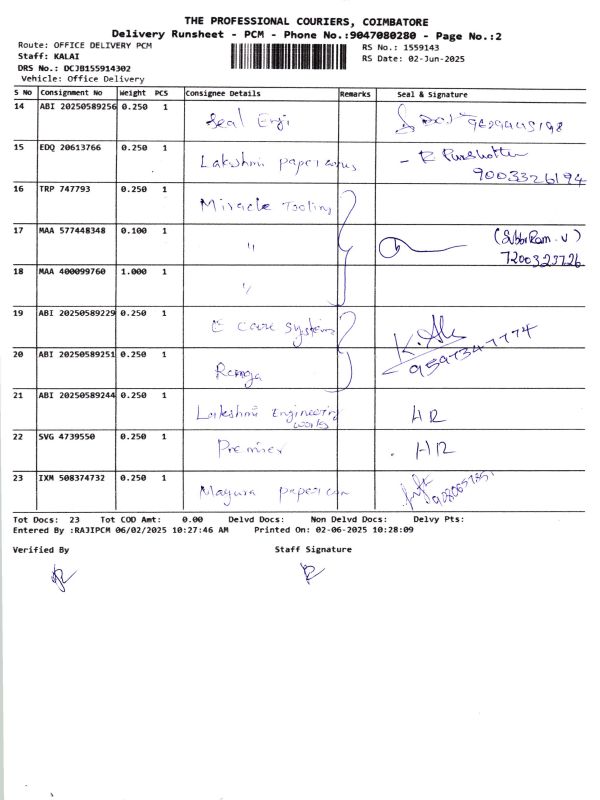 THE PROFESSIONAL COURIERS, COIMBATORE
Delivery Runsheet - PCM - Phone No.:9047080280 - Page No.:2
Route: OFFICE DELIVERY PCM
Staff: KALAI
DRS No.: DCJB155914302
Vehicle: Office Delivery
RS No.: 1559143
RS Date: 02-Jun-2025
S NO Consignment No Weight PCS Consignee Details Remarks Seal & Signature
14 ABI 20250589256 0.250 1 Seal Engi
15 EDQ 20613766 0.250 1 Lakshmi 9003326194
16 TRP 747793 0.250 1 Miracle Tooling
17 MAA 577448348 0.100 1 " (SubbiRam. V)
7200323726
18 MAA 400099760 1.000 1 "
19 ABI 20250589229 0.250 1 E Care Systems
20 ABI 20250589251 0.250 1 9597347774
21 ABI 20250589244 0.250 1 Lakshmi Engineering works HR
22 SVG 4739550 0.250 1 Premier HR
23 IXM 508374732 0.250 1 Mayura
Tot Docs: 23 Tot COD Amt: 0.00 Delvd Docs: Non Delvd Docs: Delvy Pts:
Entered By :RAJIPCM 06/02/2025 10:27:46 AM Printed On: 02-06-2025 10:28:09
Verified By Staff Signature